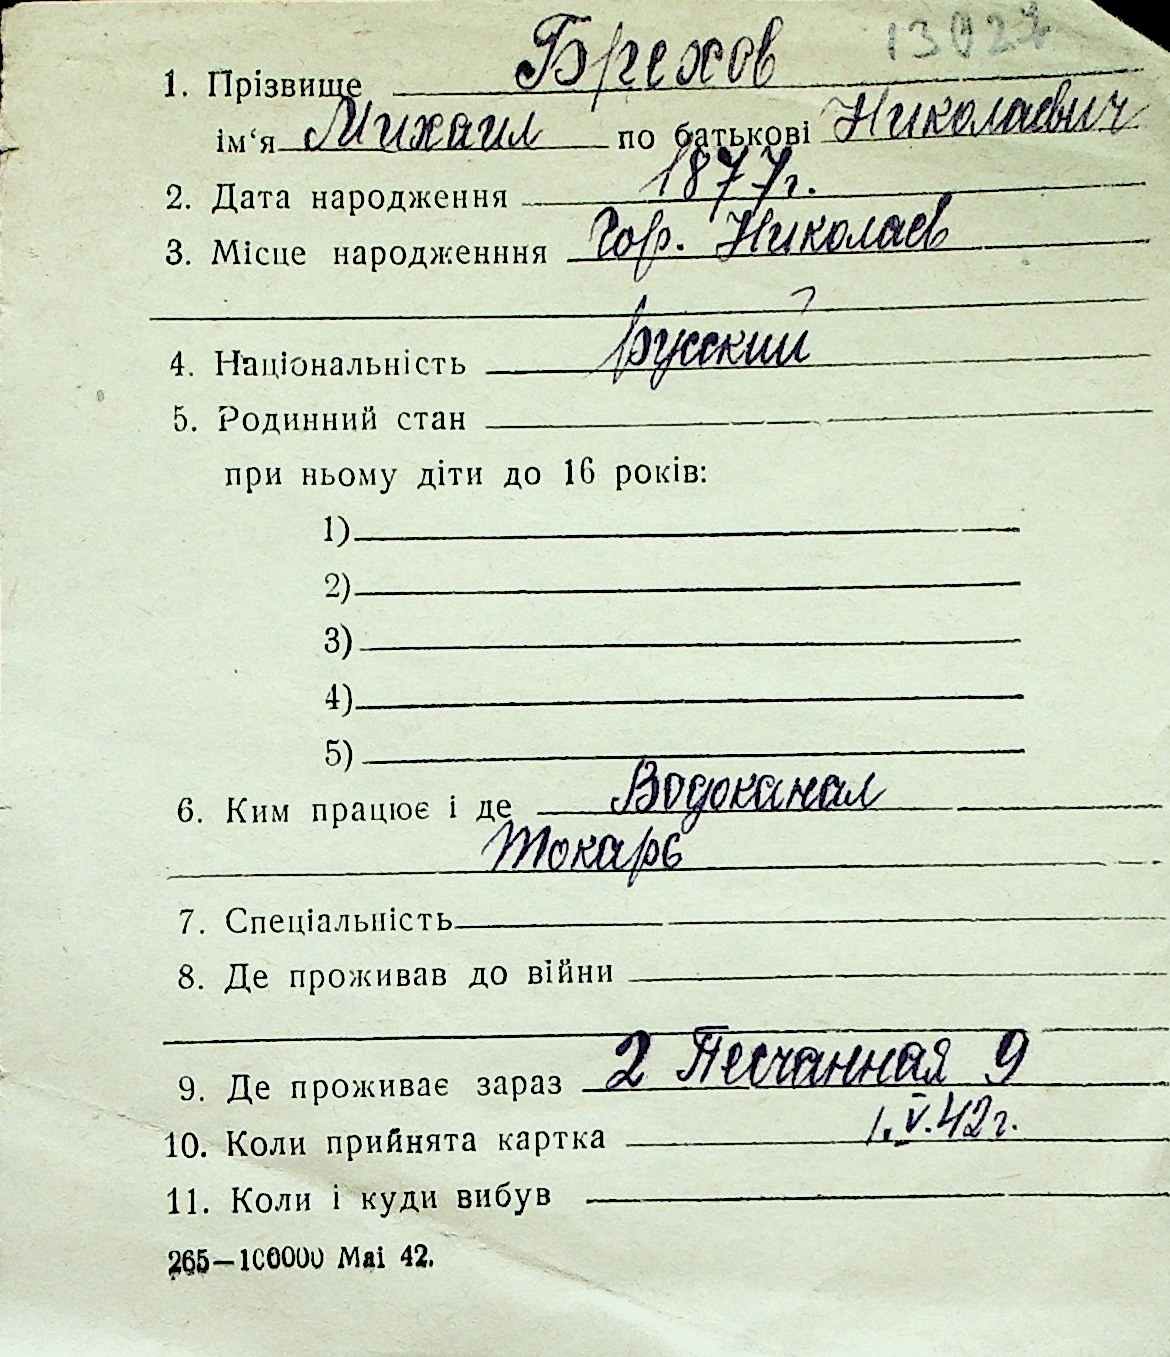 1302
1. Прізвище Брехов
ім‘я Михаил по батькові Николаевич
2. Дата народження 1877г.
3. Місце народженння Гор. Николаев
4. Національність русский
5. Родинний стан
при ньому діти до 16 років:
1)
2)
3)
4)
5)
6. Ким працює і де Водоканал
Токарь
7. Спеціальність
8. Де проживав до війни
9. Де проживає зараз 2 Песчанная 9
10. Коли прийнята картка 1.V.42г.
11. Коли і куди вибув
265—100000 Mai 42.